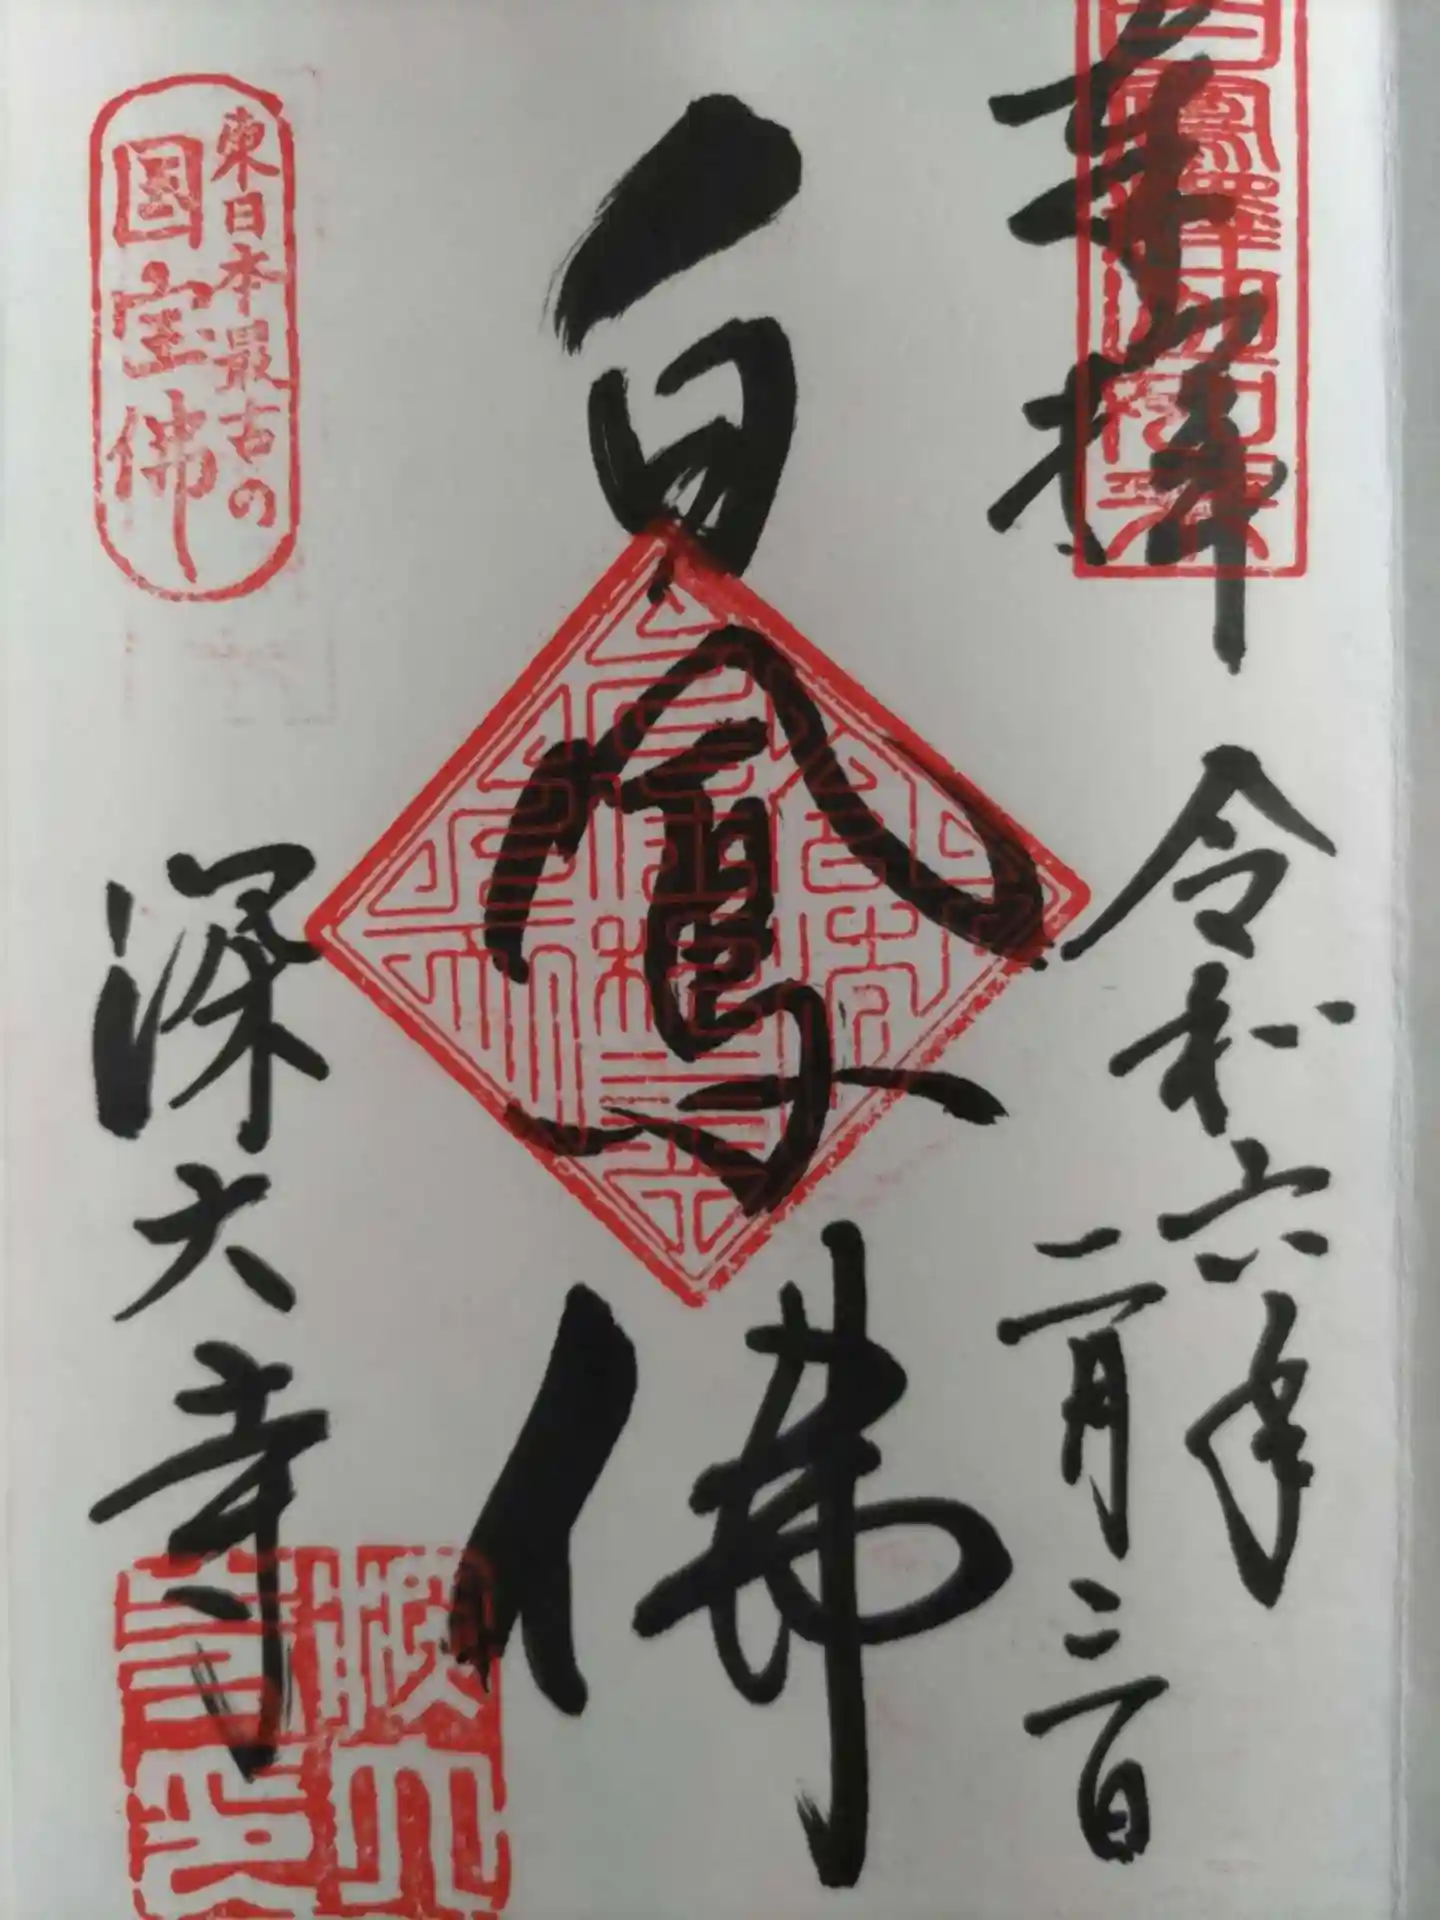 奉拝
令和六年
二月二日
白鳳佛
東日本最古の
国宝佛
深大寺